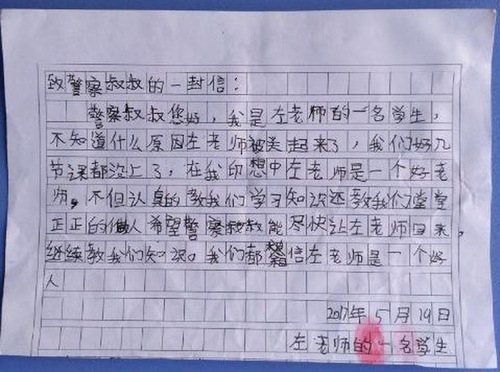 致警察叔叔的一封信：
警察叔叔您好，我是左老师的一名学生，
不知道什么原因左老师被关起来了，我们好几
节课都没上了，在我印想中左老师是一个好老
师，不但认真的教我们学习知识还教我们堂堂
正正的做人希望警察叔叔能尽快让左老师回来，
继续教我们知识。我们都相信左老师是一个好
人
2017年5月19日
左老师的一名学生